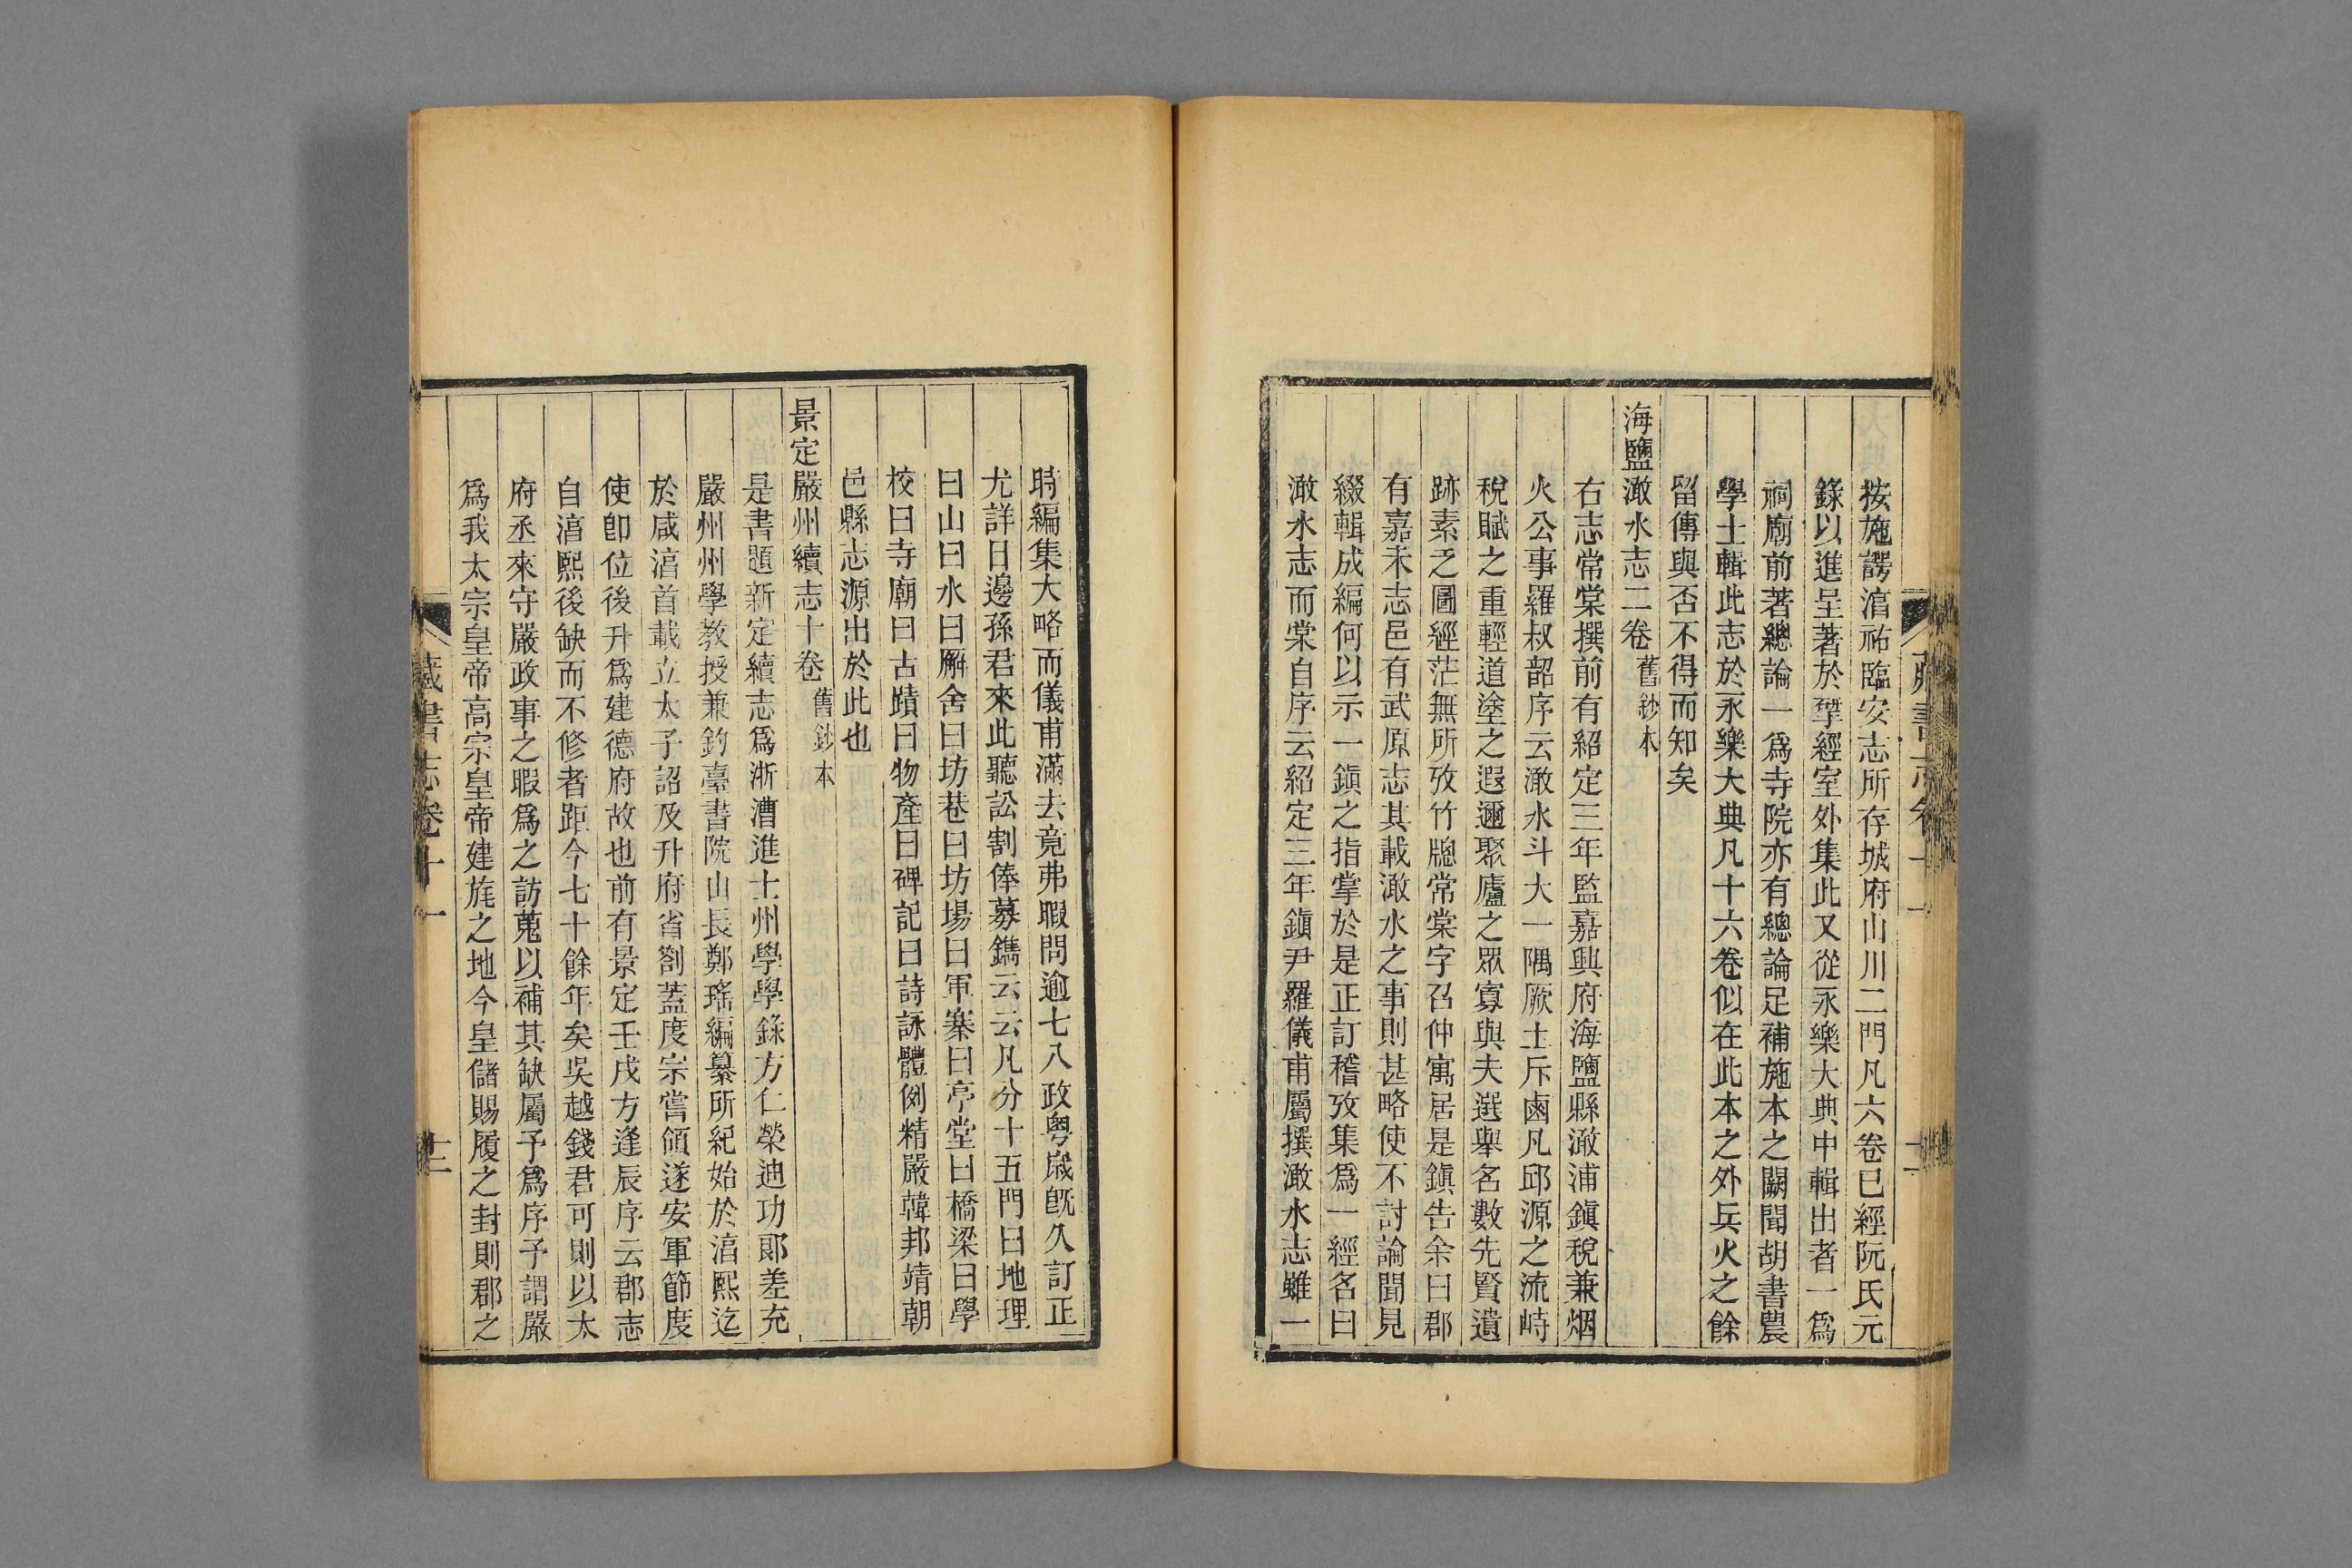 按施諤湻祐臨安志所存城府山川二門凡六卷已經阮氏元
錄以進呈著於揅經室外集此又從永樂大典中輯出者一爲
祠廟前著總論一爲寺院亦有總論足補施本之闕聞胡書農
學士輯此志於永樂大典凡十六卷似在此本之外兵火之餘
留傳與否不得而知矣
海鹽澉水志二卷舊鈔本
右志常棠撰前有紹定三年監嘉興府海鹽縣澉浦鎭稅兼烟
火公事羅叔韶序云澉水斗大一隅厥土斥鹵凡邱源之流峙
稅賦之重輕道塗之遐邇聚廬之眾寡與夫選舉名數先賢遺
跡素乏圖經茫無所攷竹牕常棠字召仲寓居是鎭告余曰郡
有嘉禾志邑有武原志其載澉水之事則甚略使不討論聞見
綴輯成編何以示一鎭之指掌於是正訂稽攷集爲一經名曰
澉水志而棠自序云紹定三年鎭尹羅儀甫屬撰澉水志雖一
時編集大略而儀甫滿去竟弗暇問逾七八政粤歲旣久訂正
尤詳日邊孫君來此聽訟割俸募鐫云云凡分十五門曰地理
曰山曰水曰廨舍曰坊巷曰坊場曰軍寨曰亭堂曰橋梁曰學
校曰寺廟曰古蹟曰物產曰碑記曰詩詠體例精嚴韓邦靖朝
邑縣志源出於此也
景定嚴州續志十卷舊鈔本
是書題新定續志爲浙漕進士州學學錄方仁榮迪功郞差充
嚴州州學教授兼釣臺書院山長鄭瑤編纂所紀始於湻熙迄
於咸湻首載立太子詔及升府省劄蓋度宗嘗領遂安軍節度
使卽位後升爲建德府故也前有景定壬戌方逢辰序云郡志
自湻熙後缺而不修者距今七十餘年矣吳越錢君可則以太
府丞來守嚴政事之暇爲之訪蒐以補其缺屬予爲序予謂嚴
爲我太宗皇帝高宗皇帝建旄之地今皇儲賜履之封則郡之
藏書志卷十一
十二